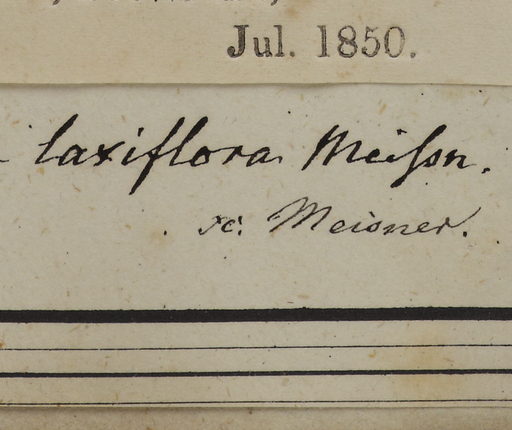 Jul. 1850.
laxiflora Meiſsn.
sc: Meisner.